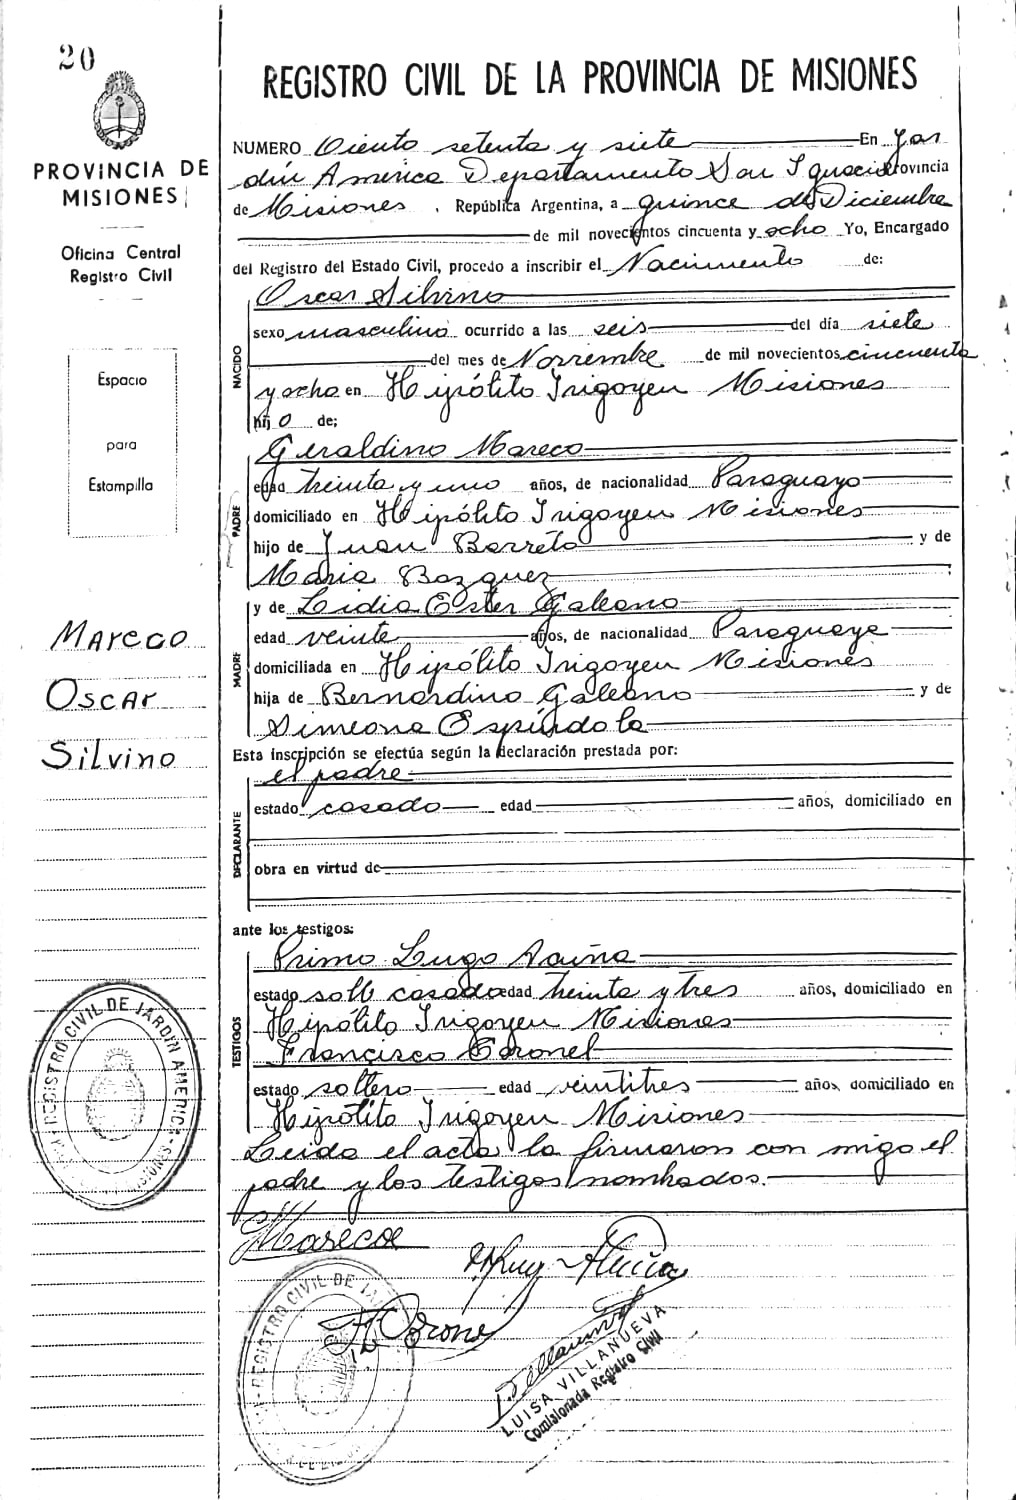 20
PROVINCIA DE
MISIONES
Oficina Central
Registro Civil
Espacio
para
Estampilla
Mareco
Oscar
Silvino
REGISTRO CIVIL DE JARDIN AMERICA - MISIONES
REGISTRO CIVIL DE LA PROVINCIA DE MISIONES
NUMERO Ciento setenta y siete En Jar
dín América Departamento San Ignacio Provincia
de Misiones , República Argentina, a quince de Diciembre
de mil novecientos cincuenta y ocho Yo, Encargado
del Registro del Estado Civil, procedo a inscribir el Nacimiento de:
NACIDO
Oscar Silvino
sexo masculino ocurrido a las seis del día siete
del mes de Noviembre de mil novecientos cincuenta
y ocho en Hipólito Irigoyen Misiones
hijo de;
PADRE
Geraldino Mareco
edad treinta y uno años, de nacionalidad Paraguayo
domiciliado en Hipólito Irigoyen Misiones
hijo de Juan Barreto y de
Maria Bazquez
MADRE
y de Lidia Ester Galeano
edad veinte años, de nacionalidad Paraguaya
domiciliada en Hipólito Irigoyen Misiones
hija de Bernardino Galeano y de
Simeona Espíndola
Esta inscripción se efectúa según la declaración prestada por:
DECLARANTE
el padre
estado casado edad años, domiciliado en
obra en virtud de
ante los testigos:
TESTIGOS
Primo Lugo
estado solt casado edad treinta y tres años, domiciliado en
Hipólito Irigoyen Misiones
Francisco Coronel
estado soltero edad veintitres años, domiciliado en
Hipólito Irigoyen Misiones
Leida el acta la firmaron con migo el
padre y los testigos nombrados.-
REGISTRO CIVIL DE JAR
LUISA VILLANUEVA
Comisionada Registro Civil